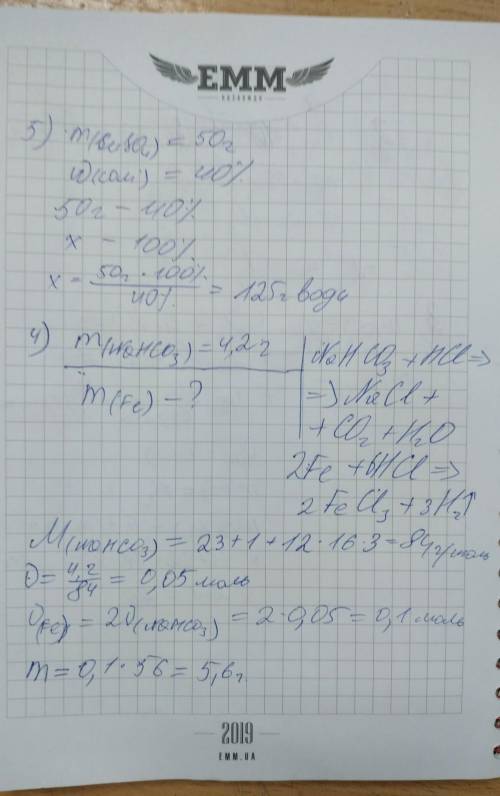 EMM
5) m(CuSO₄) = 50г
ω(соли) = 40%
50г – 40%
x – 100%
x = 50г · 100% / 40% = 125г воды
4) m(NaHCO₃) = 4,2г
m(Fe) – ?
NaHCO₃ + HCl =>
=> NaCl +
+ CO₂ + H₂O
2Fe + 6HCl =>
2FeCl₃ + 3H₂↑
M(NaHCO₃) = 23+1+12·16·3 = 84г/моль
υ = 4,2/84 = 0,05 моль
υ(Fe) = 2υ(NaHCO₃) = 2·0,05 = 0,1 моль
m = 0,1·56 = 5,6г
2019
EMM.UA